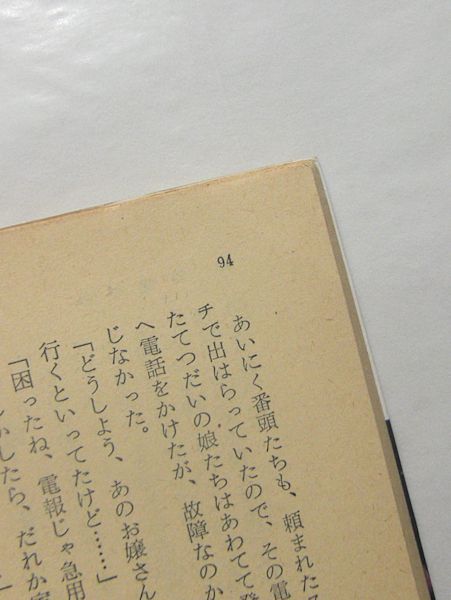 94
あいにく番頭たちも、頼まれた
チで出はらっていたので、その電
たてつだいの娘たちはあわてて発
へ電話をかけたが、故障なのか
じなかった。
「どうしよう、あのお嬢さん
行くといってたけど……」
「困ったね、電報じゃ急用
かしたら、だれか